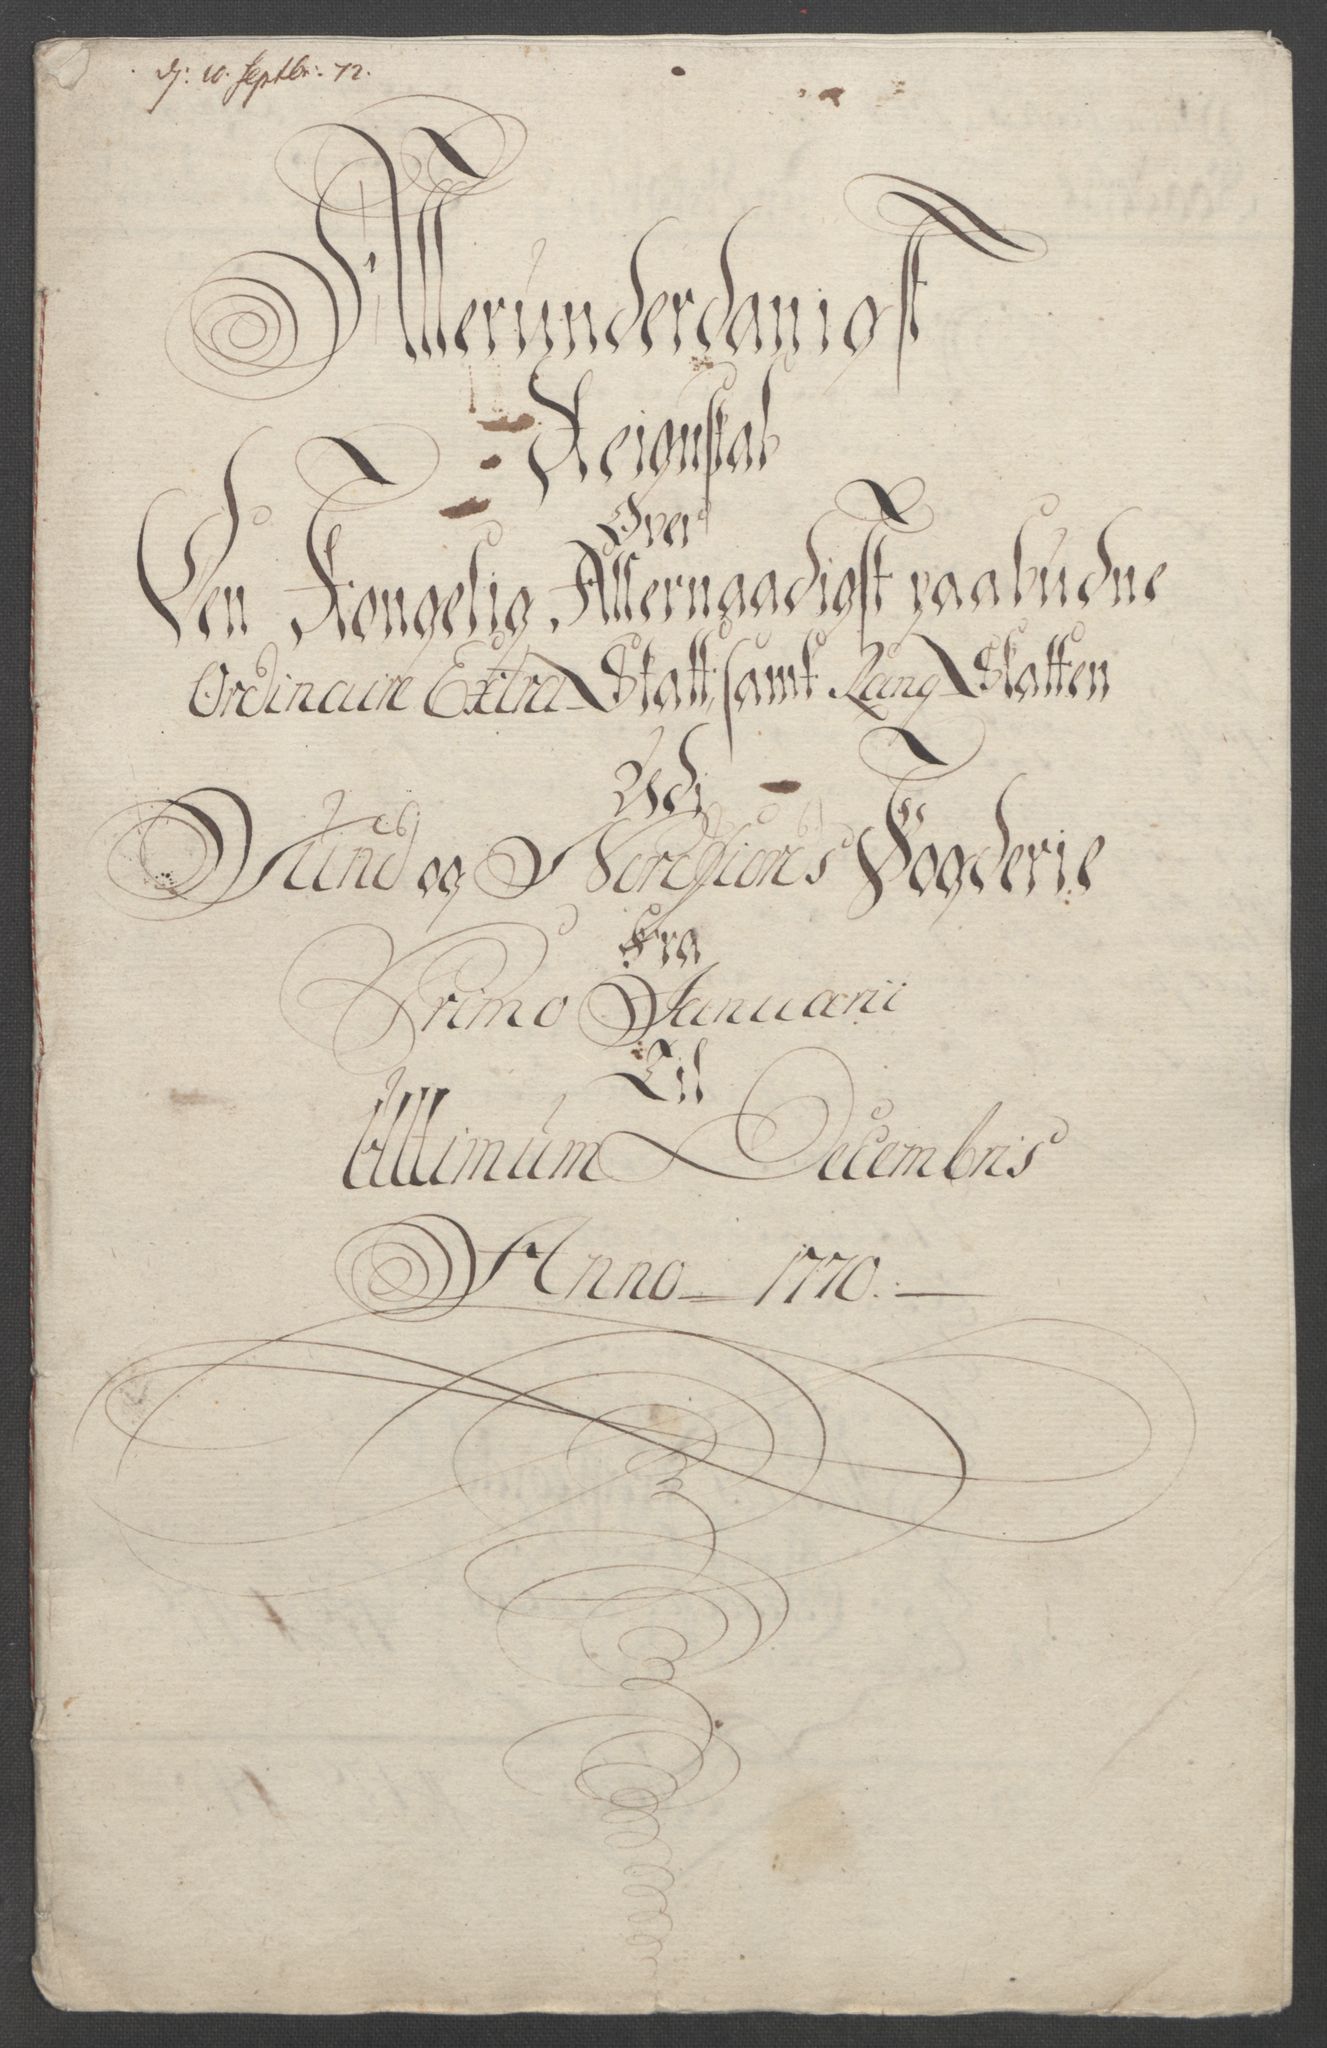 d: 10. Septbr: 72.
Allerunderdanigst
Reignskab
Over
Den Kongelig Allernaadigst paabudne
Ordinaire Extra Skatt, samt Rang Skatten
Udi
Sund og Nordfiords Fogderie
Fra
Primo Januarii
Til
Ultimum Decembris
Anno 1770.